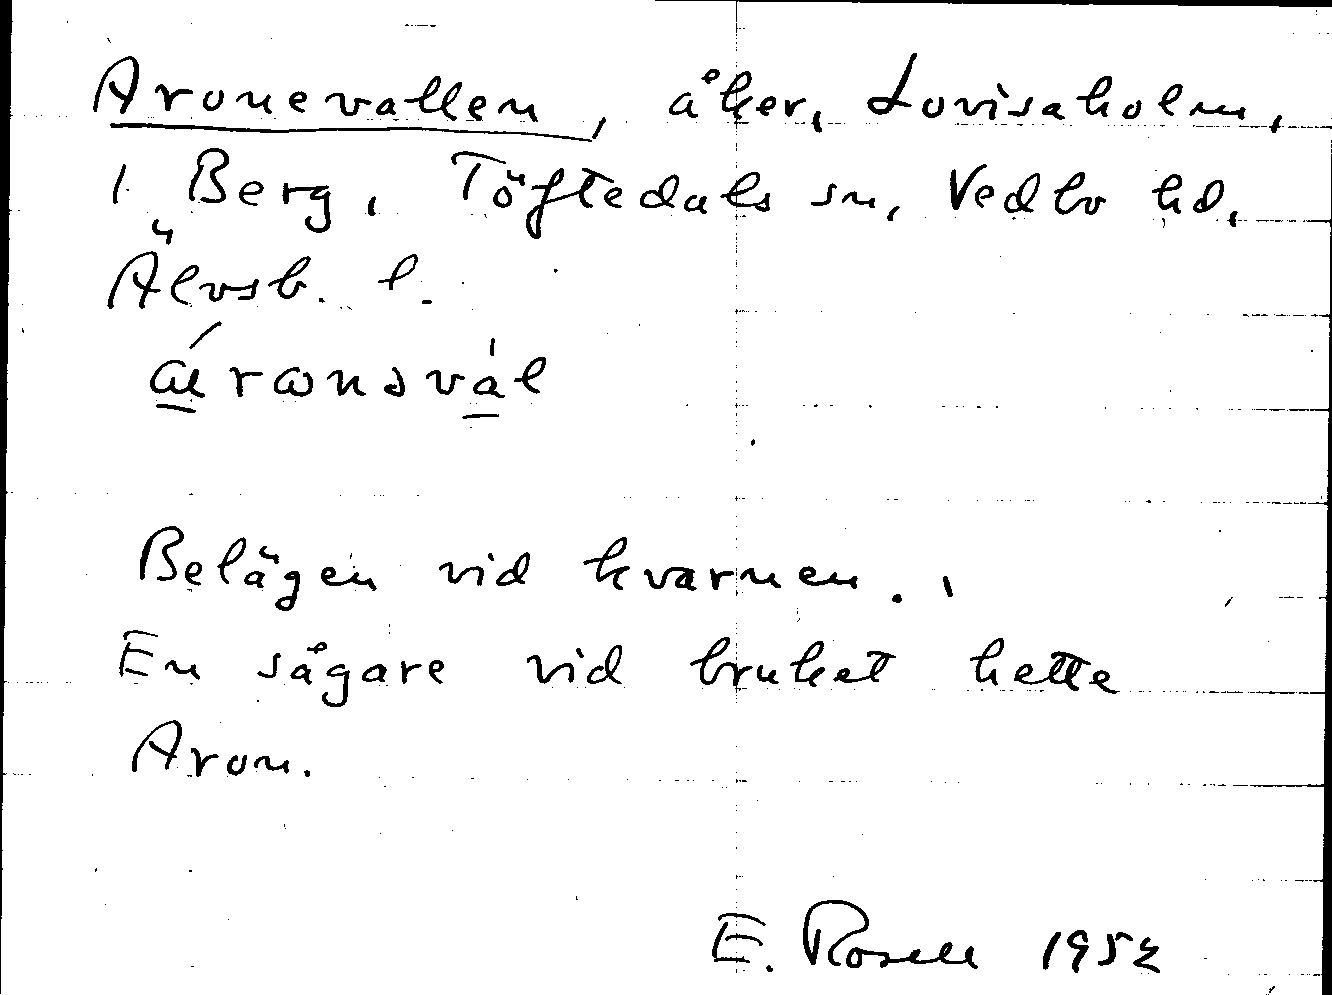 Aronevallen, åker, Lovisaholm,
1 Berg, Töftedals sn, Vedbo hd,
Älvsb. l.
Belägen vid kvarnen.
En sågare vid bruket hette
Aron.
E. Rosell 1952